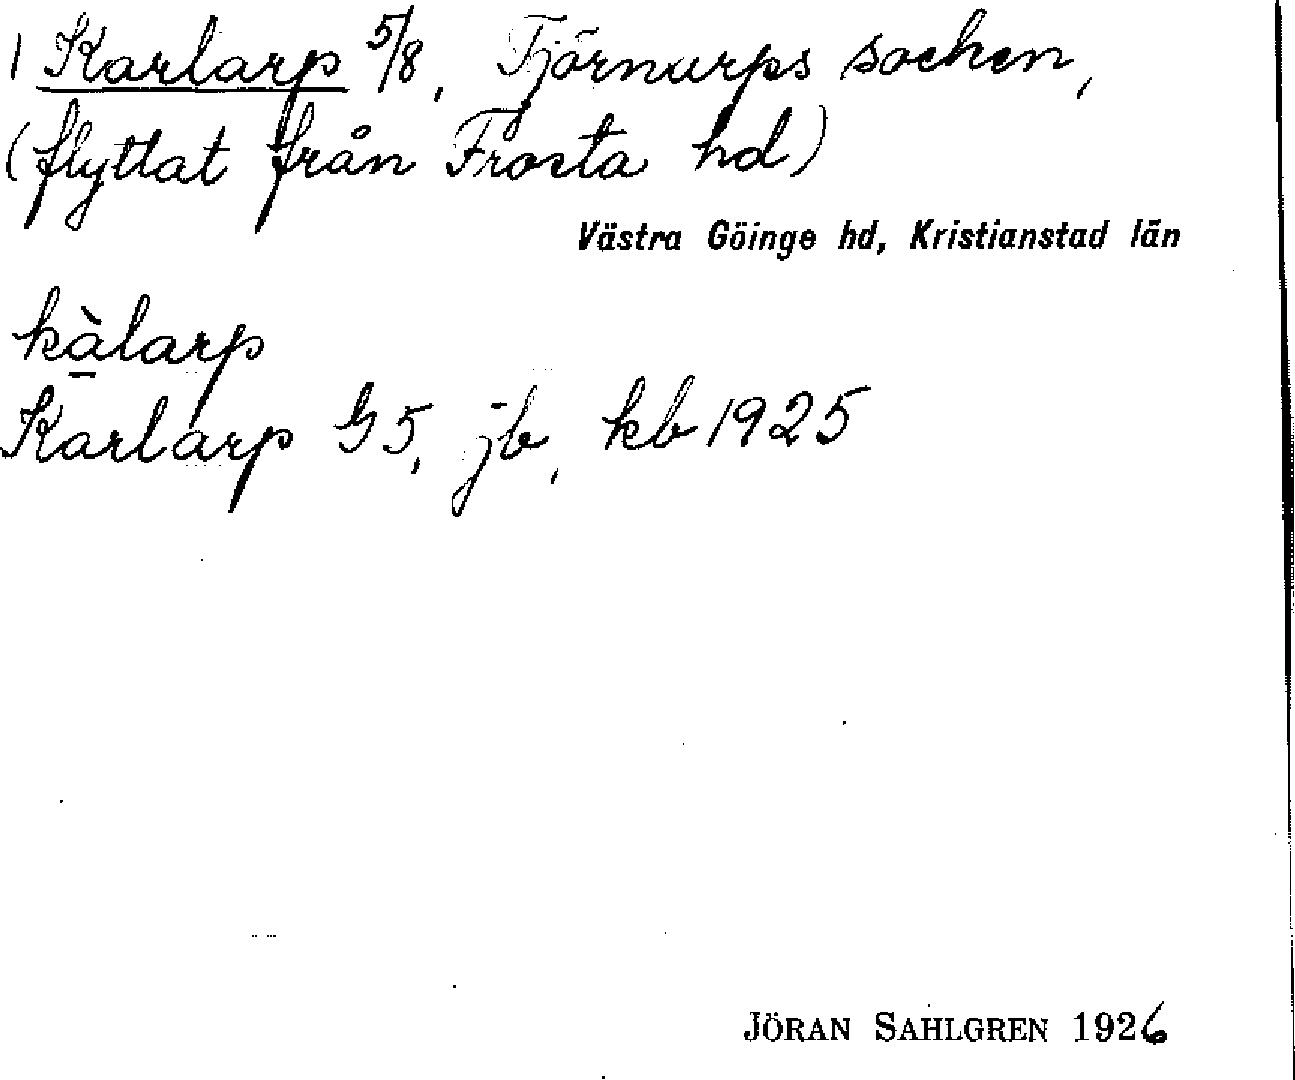 1 Karlarp 5/8, Tjörnarps socken,
(flyttat från Frosta hd)
Västra Göinge hd, Kristianstad län
kàlarp
Karlarp G5, jb, kb 1925
JÖRAN SAHLGREN 1926